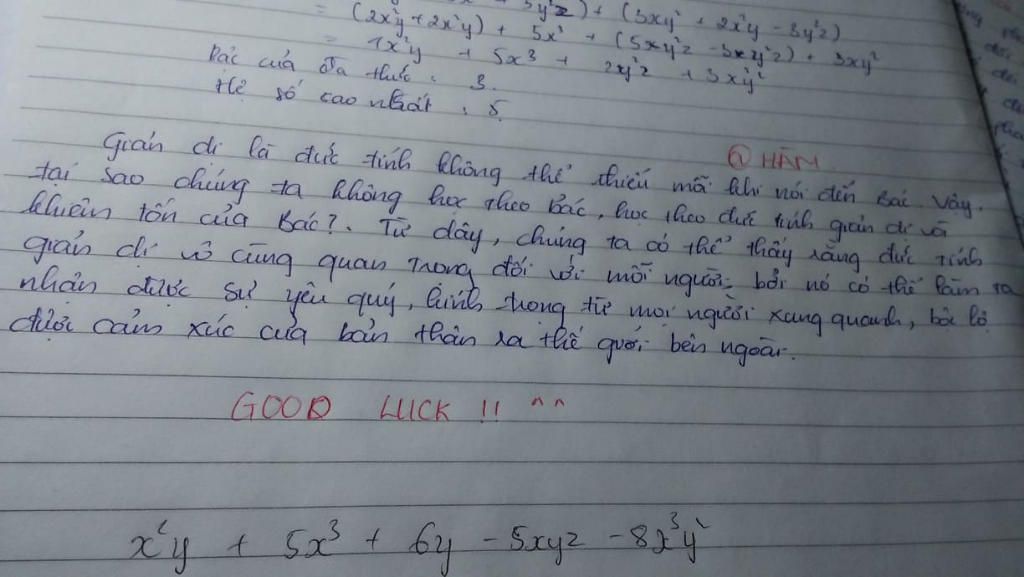 = (2x²y + 2x²y) + 5x³ + (5xy²z - 3xy²z) + 3xy²
= 4x²y + 5x³ + 2xy²z + 3xy²
Bậc của đa thức : 3.
Hệ số cao nhất : 5.
@ HÂN
Giản dị là đức tính không thể thiếu mỗi khi nói đến Bác. Vậy.
tại sao chúng ta không học theo Bác, học theo đức tính giản dị và
khiêm tốn của Bác?. Từ đây, chúng ta có thể thấy rằng đức tính
giản dị vô cùng quan trọng đối với mỗi người, bởi nó có thể làm ta
nhận được sự yêu quý, kính trọng từ mọi người xung quanh, bộc lộ
được cảm xúc của bản thân ra thế giới bên ngoài.
GOOD LUCK !! ^^
x²y + 5x³ + 6y - 5xyz - 8x³y²